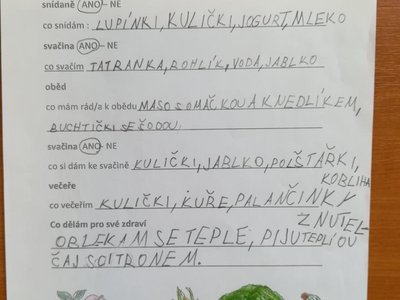 snídaně ANO – NE
co snídám : LUPÍNKI, KULIČKI, JOGURT, MLEKO
svačina ANO – NE
co svačím TATRANKA, ROHLÍK, VODA, JABLKO
oběd
co mám rád/a k obědu MASO S OMÁČKOU A KNEDLÍKEM,
BUCHTIČKI SE ŠODOU,
svačina ANO – NE
co si dám ke svačině KULIČKI, JABLKO, POLŠTÁŘKI,
KOBLIHA
večeře
co večeřím KULIČKI, KUŘE, PALANČINKY
Z NUTEL
Co dělám pro své zdraví
OBLEKAM SE TEPLE, PIJU TEPLI OU
ČAJ S CITRONEM.